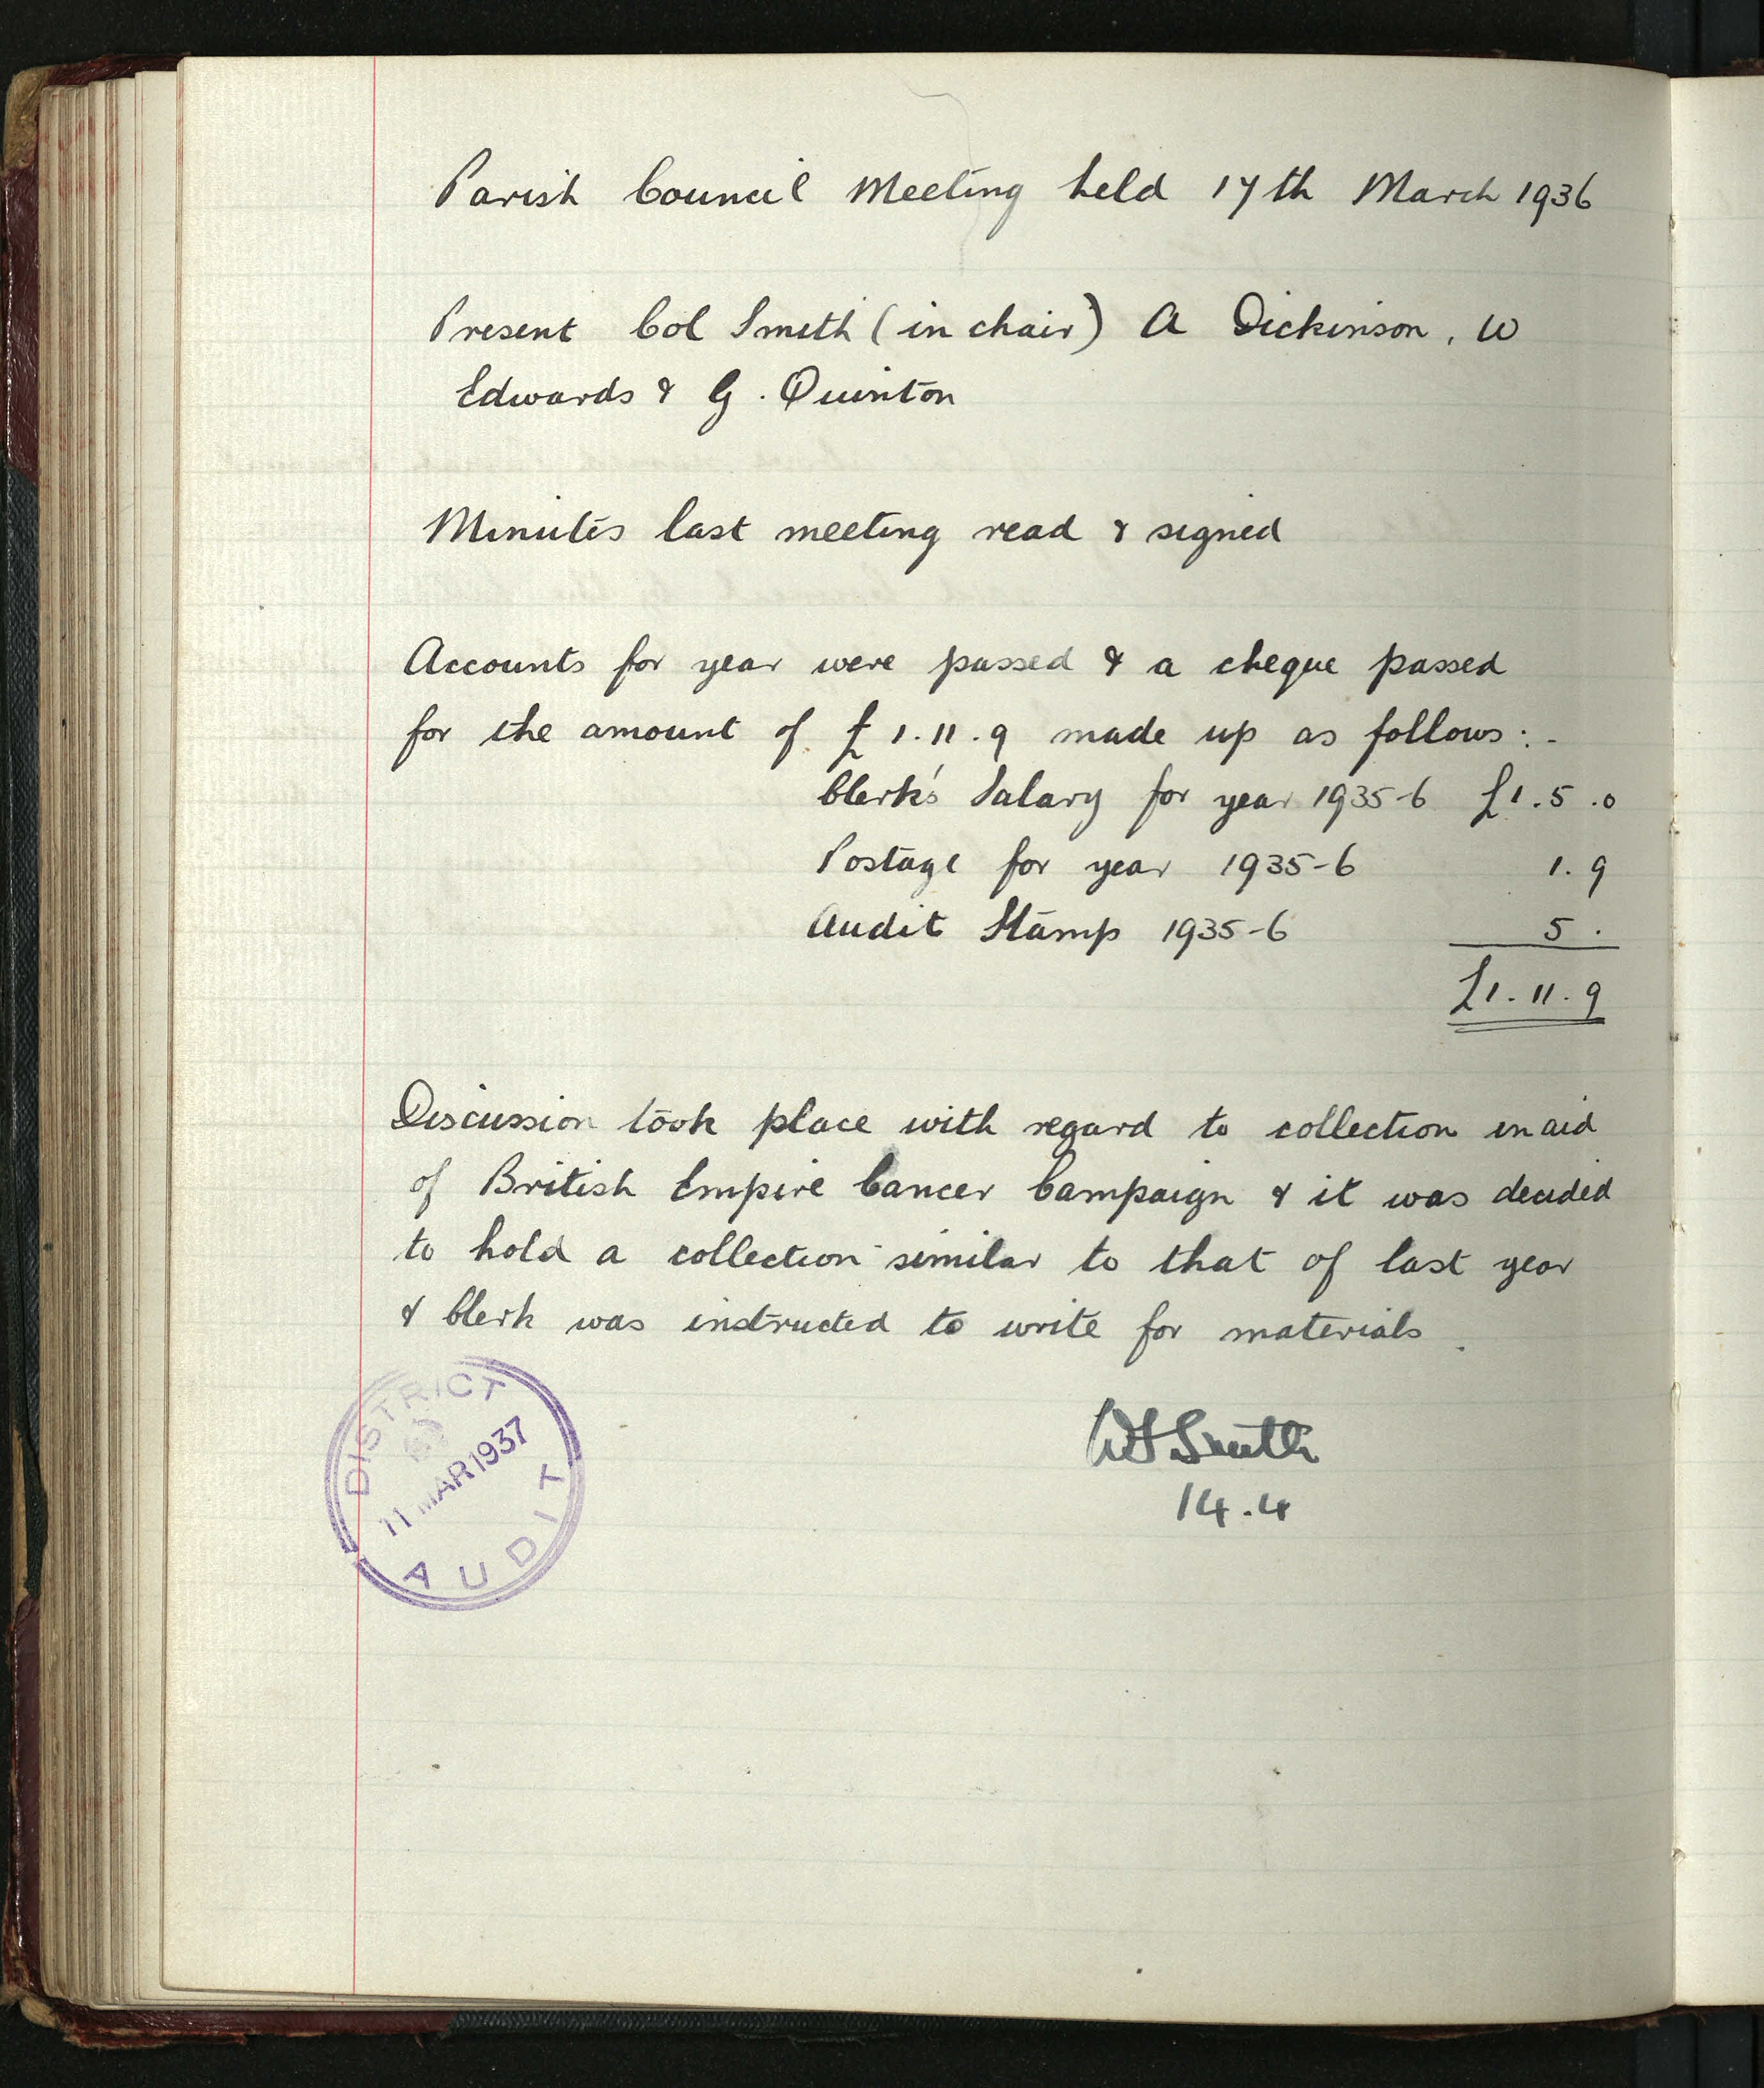 Parish Council Meeting held 17th March 1936
Present Col Smith (in chair) A Dickinson, W
Edwards & G. Quinton
Minutes last meeting read & signed
Accounts for year were passed & a cheque passed
for the amount of £1.11.9 made up as follows:-
Clerk's Salary for year 1935-6 £1.5.0
Postage for year 1935-6 1.9
Audit Stamp 1935-6 5.
£1.11.9
Discussion took place with regard to collection in aid
of British Empire Cancer Campaign & it was decided
to hold a collection similar to that of last year
& Clerk was instructed to write for materials.
Smith
14.4
DISTRICT
11 MAR 1937
AUDIT